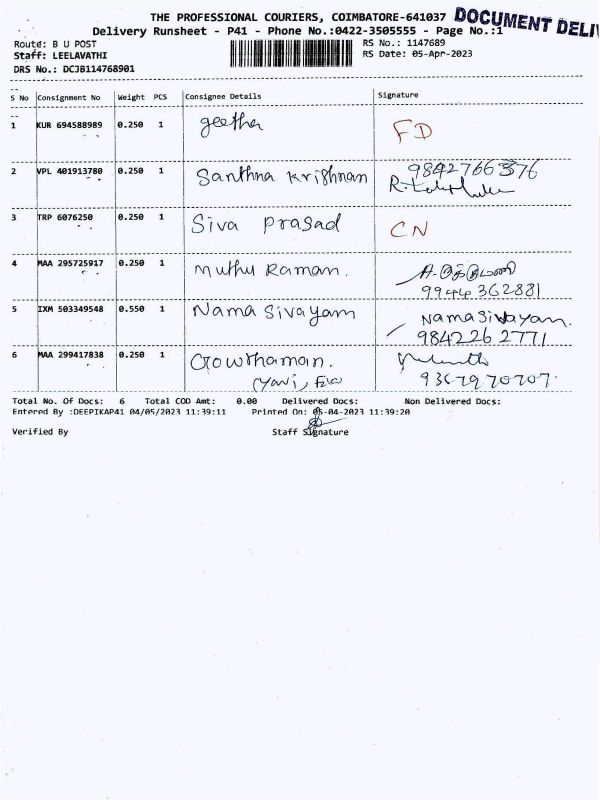 THE PROFESSIONAL COURIERS, COIMBATORE-641037
DOCUMENT DELI
Delivery Runsheet - P41 - Phone No.:0422-3505555 - Page No.:1
Route: B U POST
RS No.: 1147689
Staff: LEELAVATHI
RS Date: 05-Apr-2023
DRS No.: DCJB114768901
S No Consignment No Weight PCS Consignee Details Signature
1 KUR 694588989 0.250 1 geetha FD
2 VPL 401913780 0.250 1 Santhna Krishnan 9842766376
3 TRP 6076250 0.250 1 Siva Prasad CN
4 MAA 295725917 0.250 1 Muthu Raman.
9944362881
5 IXM 503349548 0.550 1 Nama Sivayam Nama Sivayam.
9842262771
6 MAA 299417838 0.250 1 Gowthaman.
9367970707.
Total No. Of Docs: 6 Total COD Amt: 0.00 Delivered Docs: Non Delivered Docs:
Entered By :DEEPIKAP41 04/05/2023 11:39:11 Printed On: 05-04-2023 11:39:20
Verified By Staff Signature